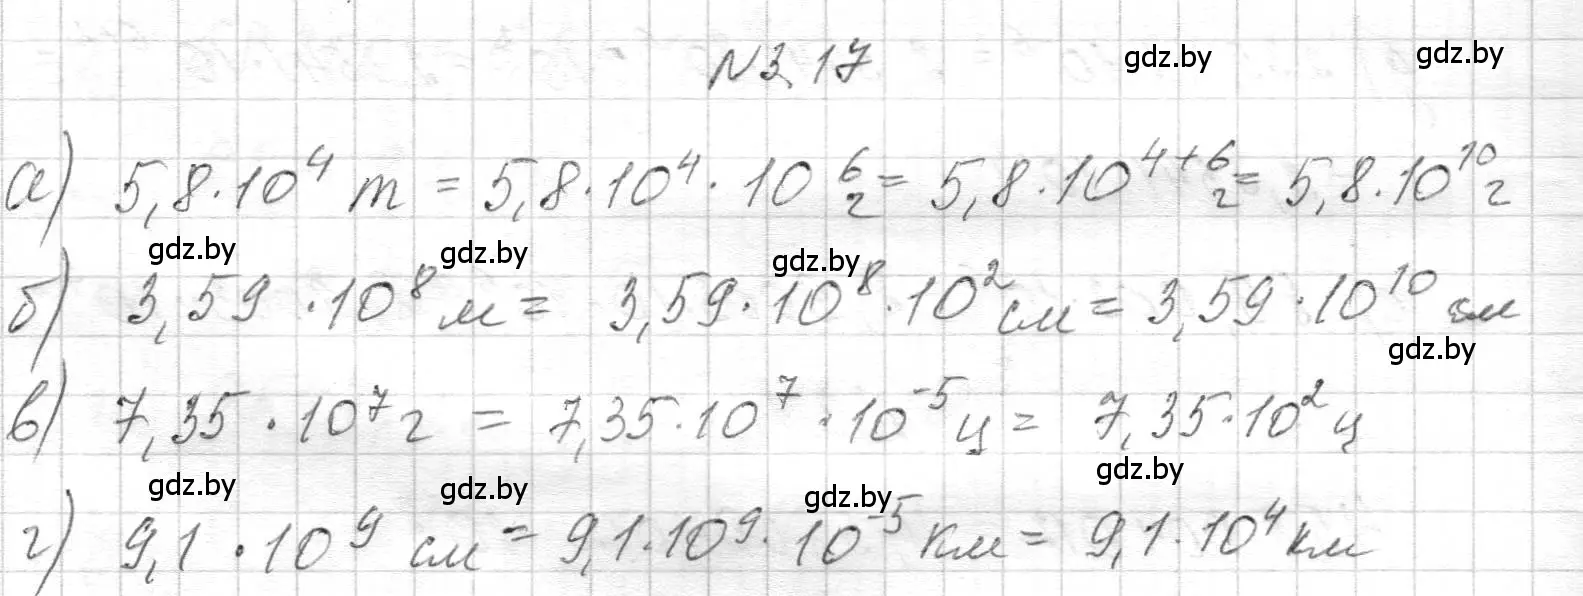 №3.17
gdz.by
gdz.by
а) 5,8·10⁴ т = 5,8·10⁴·10⁶ г = 5,8·10⁴⁺⁶ г = 5,8·10¹⁰ г
gdz.by gdz.by gdz.by
б) 3,59·10⁸ м = 3,59·10⁸·10² см = 3,59·10¹⁰ см
gdz.by
в) 7,35·10⁷ г = 7,35·10⁷·10⁻⁵ ц = 7,35·10² ц
gdz.by gdz.by gdz.by gdz.by
г) 9,1·10⁹ см = 9,1·10⁹·10⁻⁵ км = 9,1·10⁴ км